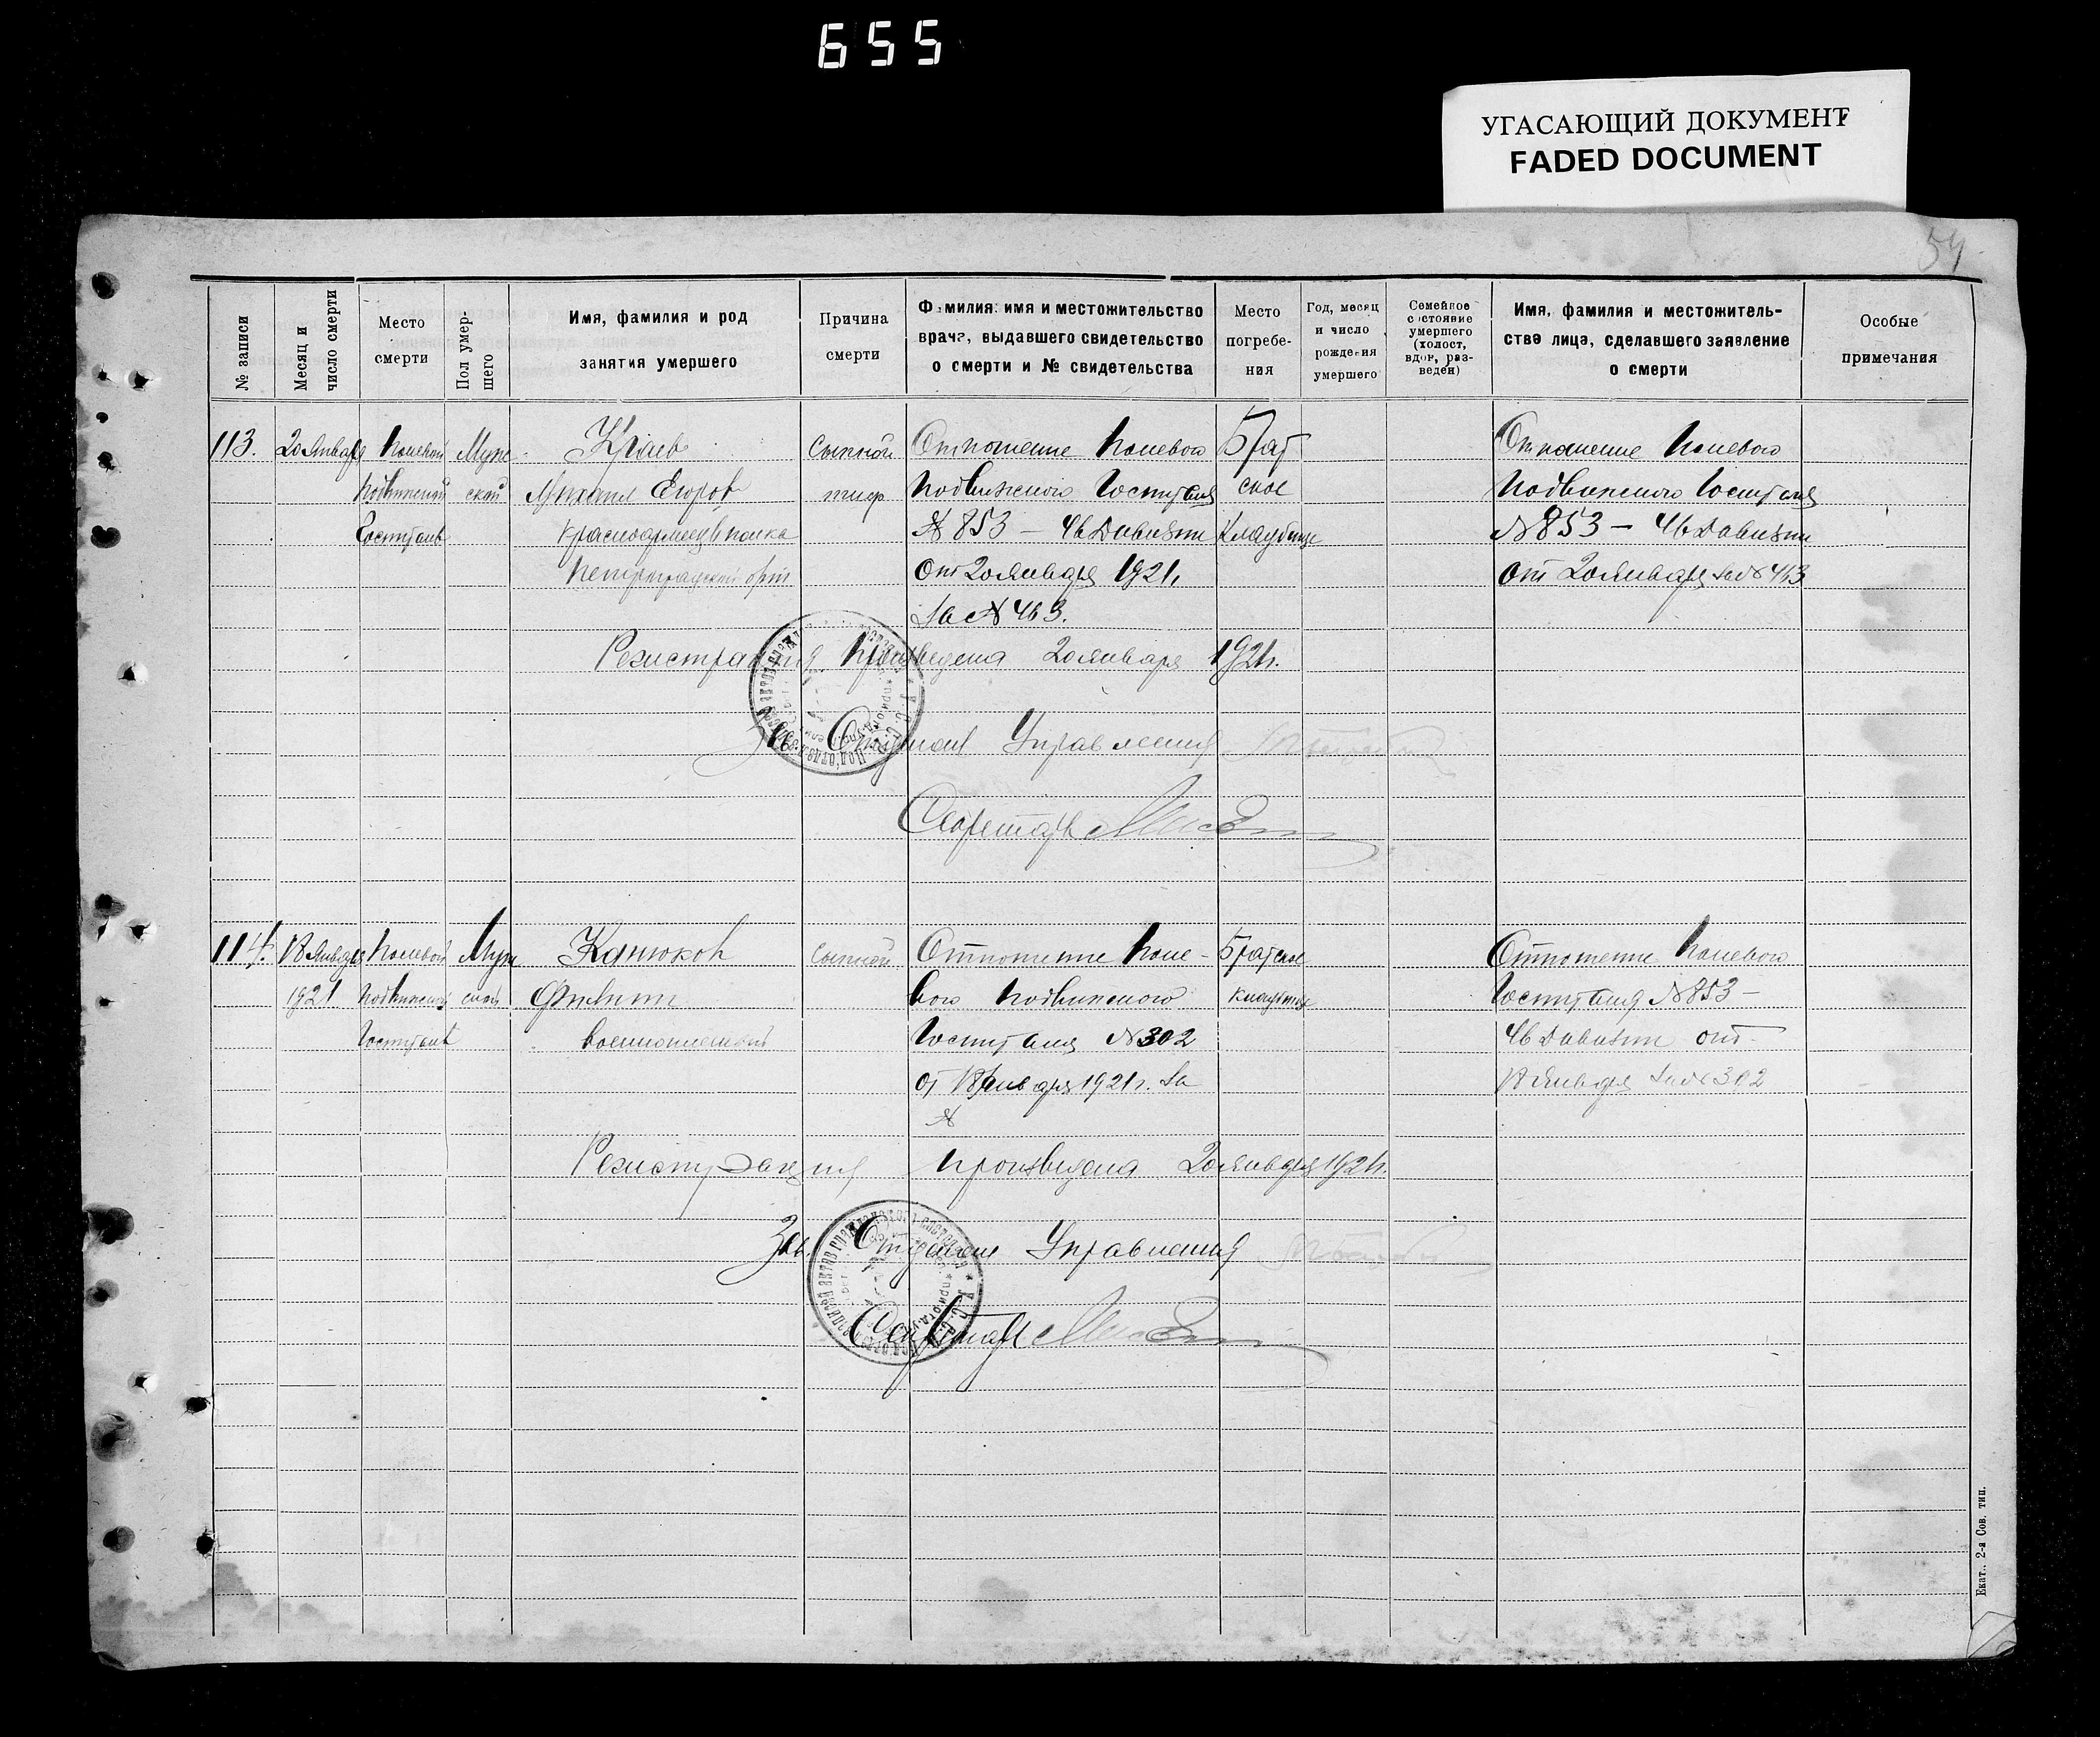 655
УГАСАЮЩИЙ ДОКУМЕНТ
FADED DOCUMENT
54
№ записи
Месяц и
число смерти
Место
смерти
Пол умер-
шего
Имя, фамилия и род
занятия умершего
Причина
смерти
Фамилия, имя и местожительство
врача, выдавшего свидетельство
о смерти и № свидетельства
Место
погребе-
ния
Год, месяц
и число
рождения
умершего
Семейное
состояние
умершего
(холост,
вдов, раз-
веден)
Имя, фамилия и местожитель-
ства лица, сделавшего заявление
о смерти
Особые
примечания
113.
20 Января
Полевой
Подвижной
Госпиталь
Муж-
ской
Краев
Михаил Егоров
Красноармеец полка
Сыпной
тиф
Отношение Полевого
Подвижного Госпиталя
№ 853 — 46 Дивизии
От 20 Января 1921
За № 463.
Брат
ское
Кладбище
Отношение Полевого
Подвижного Госпиталя
№ 853 — 46 Дивизии
От 20 Января За № 463
Регистрация произведена 20 января 1921 г.
Зав. Отделом Управления
Секретарь
114.
18 Января
1921
Полевой
Подвижной
Госпиталь
Муж
ской
Канюков
Филипп
военнопленный
Сыпной
Отношение Поле-
вого Подвижного
Госпиталя № 302
От 18 Января 1921 г. За
№
Братское
кладбище
Отношение Полевого
Госпиталя № 853 —
46 Дивизии от
18 Января За № 302
Регистрация произведена 20 января 1921 г.
Зав. Отделом Управления
Секретарь
Екат. 2-я Сов. тип.